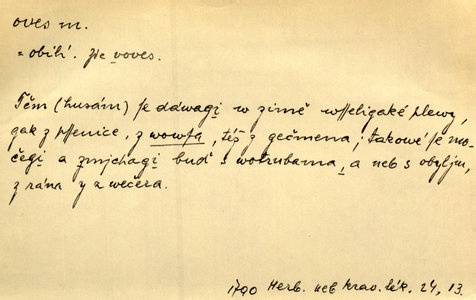 oves m.
= obilí. Zde voves.
Těm (husám) se dáwagj w zimě wsseligaké plewy,
gak z pssenice, z wowsa, též z gečmena; takowé se mo-
čegj a zmjchagj buď s wotrubama, a neb s obyljm,
z rána y z wečera.
1790 Herb. neb krav. lék. 24, 13.